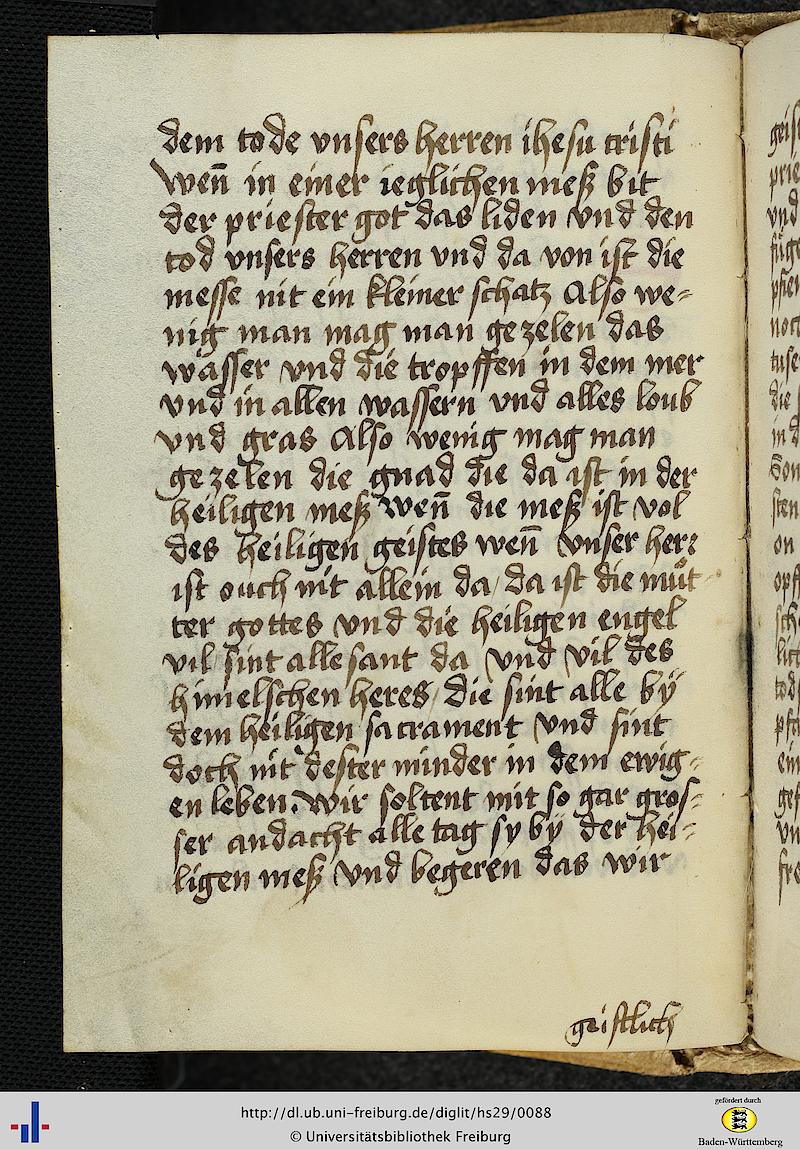 dem tode vnsers herren ihesu cristi
wen̄ in einer ieglichen meß bit
der priester got das liden vnd den
tod vnsers herren vnd da von ist die
messe nit ein kleiner schatz Also we⸗
nig man mag man gezelen das
wasser vnd die tropffen in dem mer
vnd in allen wassern vnd alles loub
vnd gras Also wenig mag man
gezelen die gnad die da ist in der
heiligen meß wen̄ die meß ist vol
des heiligen geistes wen̄ vnser herr
ist ouch nit allein da / da ist die muͦt
ter gottes vnd die heiligen engel
vil / sint alle sant da / vnd vil des
himelschen heres / die sint alle bÿ
dem heiligen sacrament vnd sint
doch nit dester minder in dem ewig⸗
en leben. wir soltent mit so gar gros⸗
ser andacht alle tag sy bÿ der hei⸗
ligen meß vnd begeren das wir
geistlich
geis
prie
vnd
füge
noch
tuse
die
in d
von
sten
on
opff
sch
lich
tods
ein
gef
vn
fre
http://dl.ub.uni-freiburg.de/diglit/hs29/0088
© Universitätsbibliothek Freiburg
gefördert durch
Baden-Württemberg